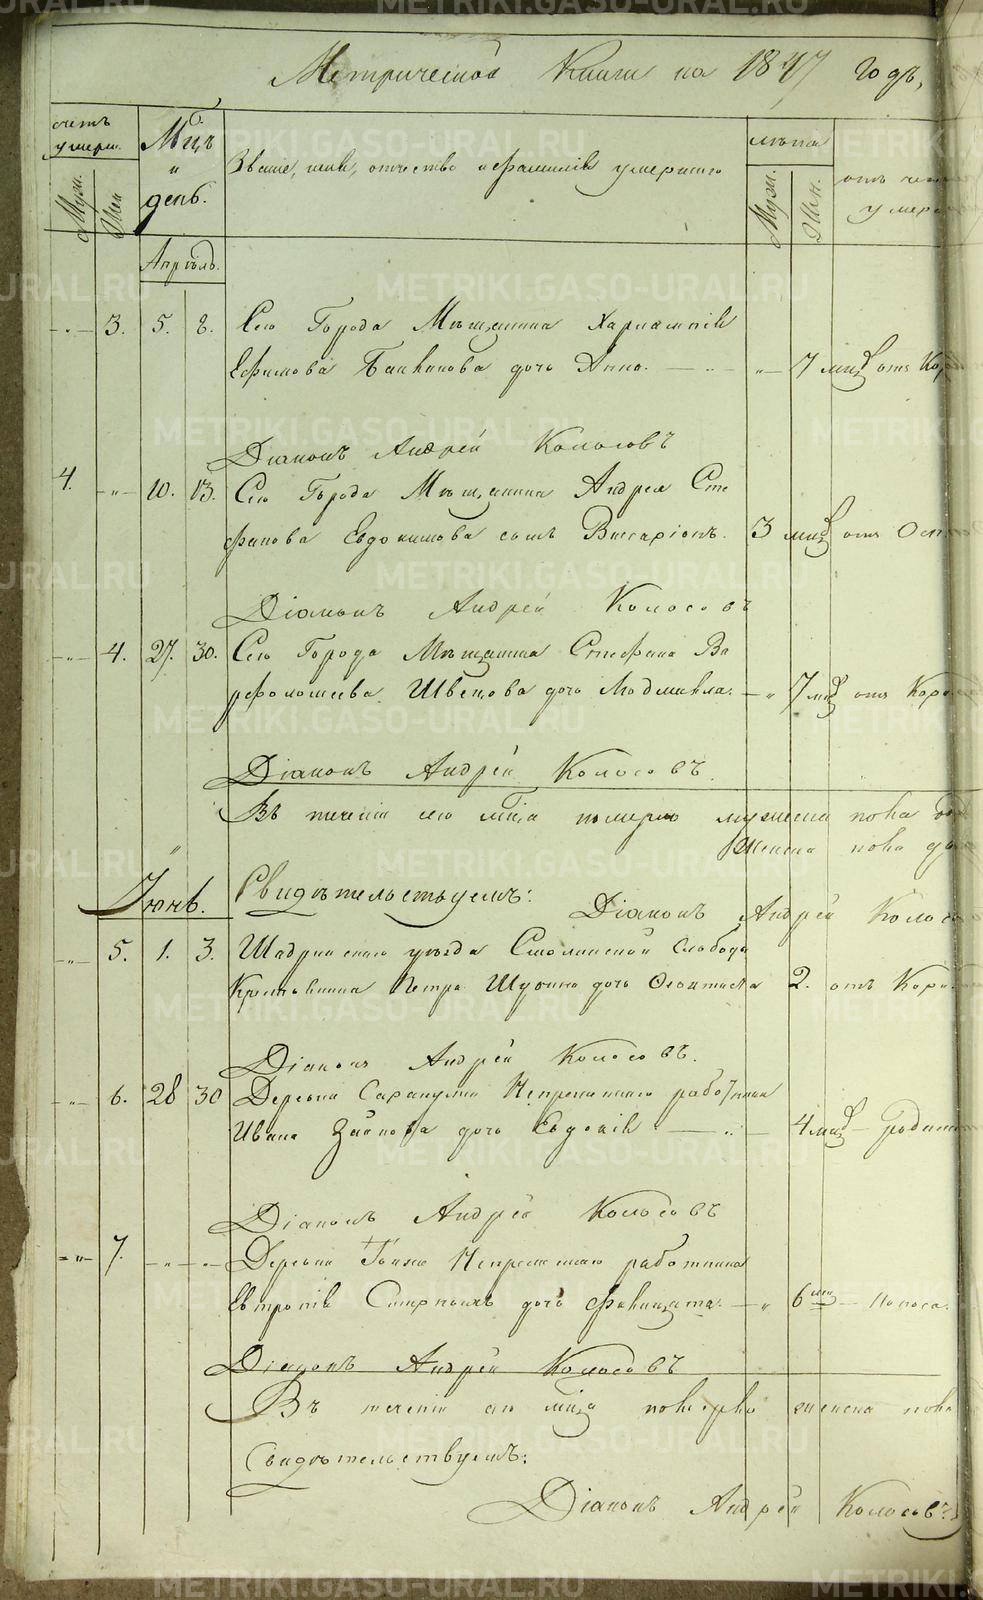 Метрической Книги на 1847 годъ,
счетъ умерш.
Муж.
Жен
Мцъ и день.
Званіе, имя, отчество и фамилія умершаго
лѣта
Муж.
Жен.
отъ чего
умер
Апрѣль.
3. 5. 8. Сего Города Мѣщанина Харлампія
Ефимова дочь Анна. 7 мцъ отъ Кор
Діаконъ Андрей Колосовъ
4. 10. 13. Сего Города Мѣщанина Андрея Сте
фанова Евдокимова сынъ Виссаріонъ. 3 мцъ отъ Осп
Діаконъ Андрей Колосовъ
4. 27. 30. Сего Города Мѣщанина Стефана Ва
рфоломеева Швецова дочь Людмилла. 7 мцъ отъ Кор
Діаконъ Андрей Колосовъ
Въ теченіи сего мца померло мужеска пола
женска пола
Іюнь. Свидѣтельствуемъ:
Діаконъ Андрей Колосо
5. 1. 3. Шадринскаго уѣзда Смолинской Слободы
Крестьянина Петра дочь 2. отъ Кори
Діаконъ Андрей Колосовъ.
6. 28 30 Деревни Непремѣннаго работника
Ивана дочь Евдокія 4 мцъ
Діаконъ Андрей Колосовъ
7. Деревни Непремѣннаго работника
Евтропія дочь 6 мц поноса.
Діаконъ Андрей Колосовъ
Въ теченіи сего мца померло женска пола
Свидѣтельствуемъ:
Діаконъ Андрей Колосовъ
METRIKI.GASO-URAL.RU